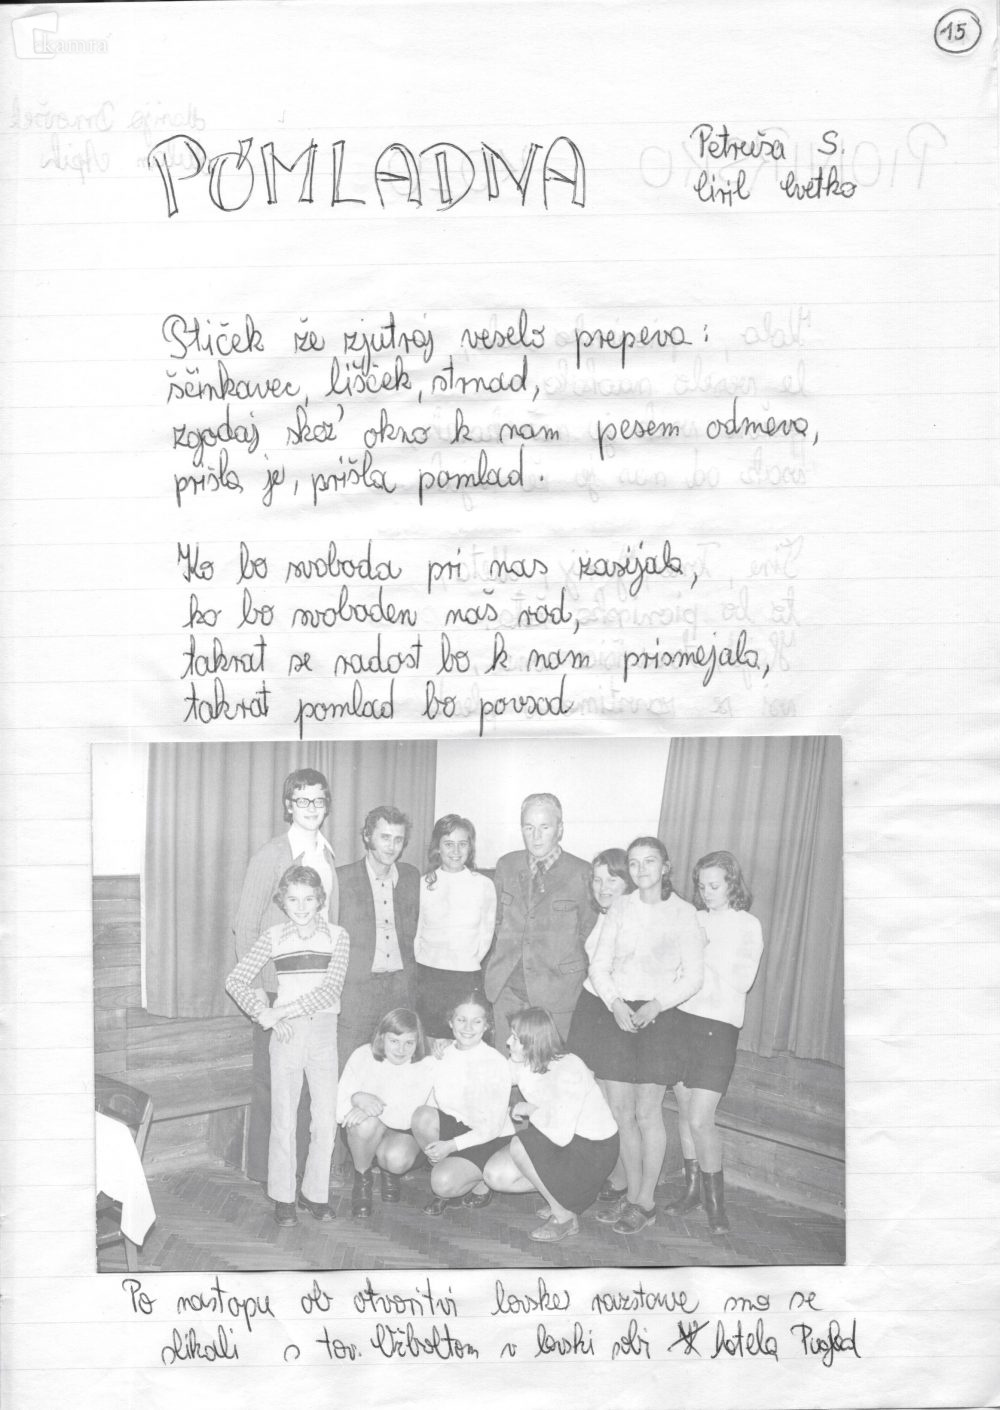 kamra
15
POMLADNA
Petruša S.
Ciril Cvetko
Ptiček že zjutraj veselo prepeva:
ščinkavec, lišček, strnad,
zgodaj skoz' okno k nam pesem odmeva,
prišla je, prišla pomlad.
Ko bo svoboda pri nas zasijala,
ko bo svoboden naš rod,
takrat se radost bo k nam prismejala,
takrat pomlad bo povsod.
Po nastopu ob otvoritvi lovske razstave smo se
slikali s tov. v lovski sobi hotela Pugled